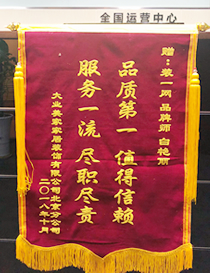 全国运营中心
赠：装一网 品牌师 白艳丽
品质第一 值得信赖
服务一流 尽职尽责
大业美家家居装饰有限公司北京分公司
二〇一八年十月